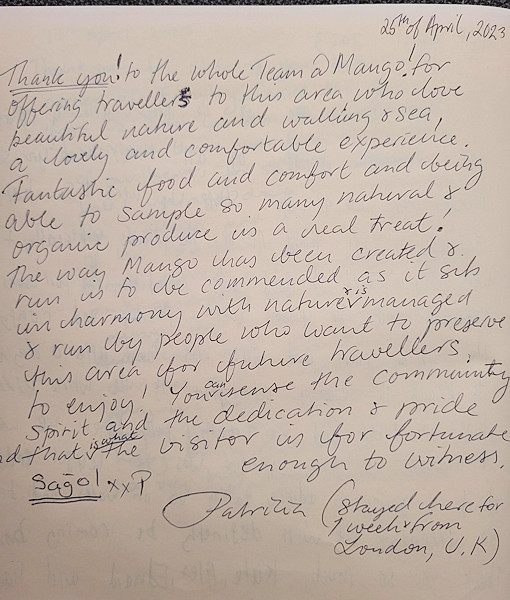 25th of April, 2023
Thank you! to the whole Team @ Mango! for
offering travellers to this area who love
beautiful nature and walking & sea,
a lovely and comfortable experience.
Fantastic food and comfort and being
able to sample so many natural &
organic produce is a real treat!
The way Mango has been created &
run is to be commended as it sits
in harmony with nature & is managed
& run by people who want to preserve
this area for future travellers.
to enjoy! You can sense the community
spirit and the dedication & pride
nd that is what the visitor is for fortunate
enough to witness.
Sağol xxP
Patrizia (stayed here for
1 week & from
London, U.K)